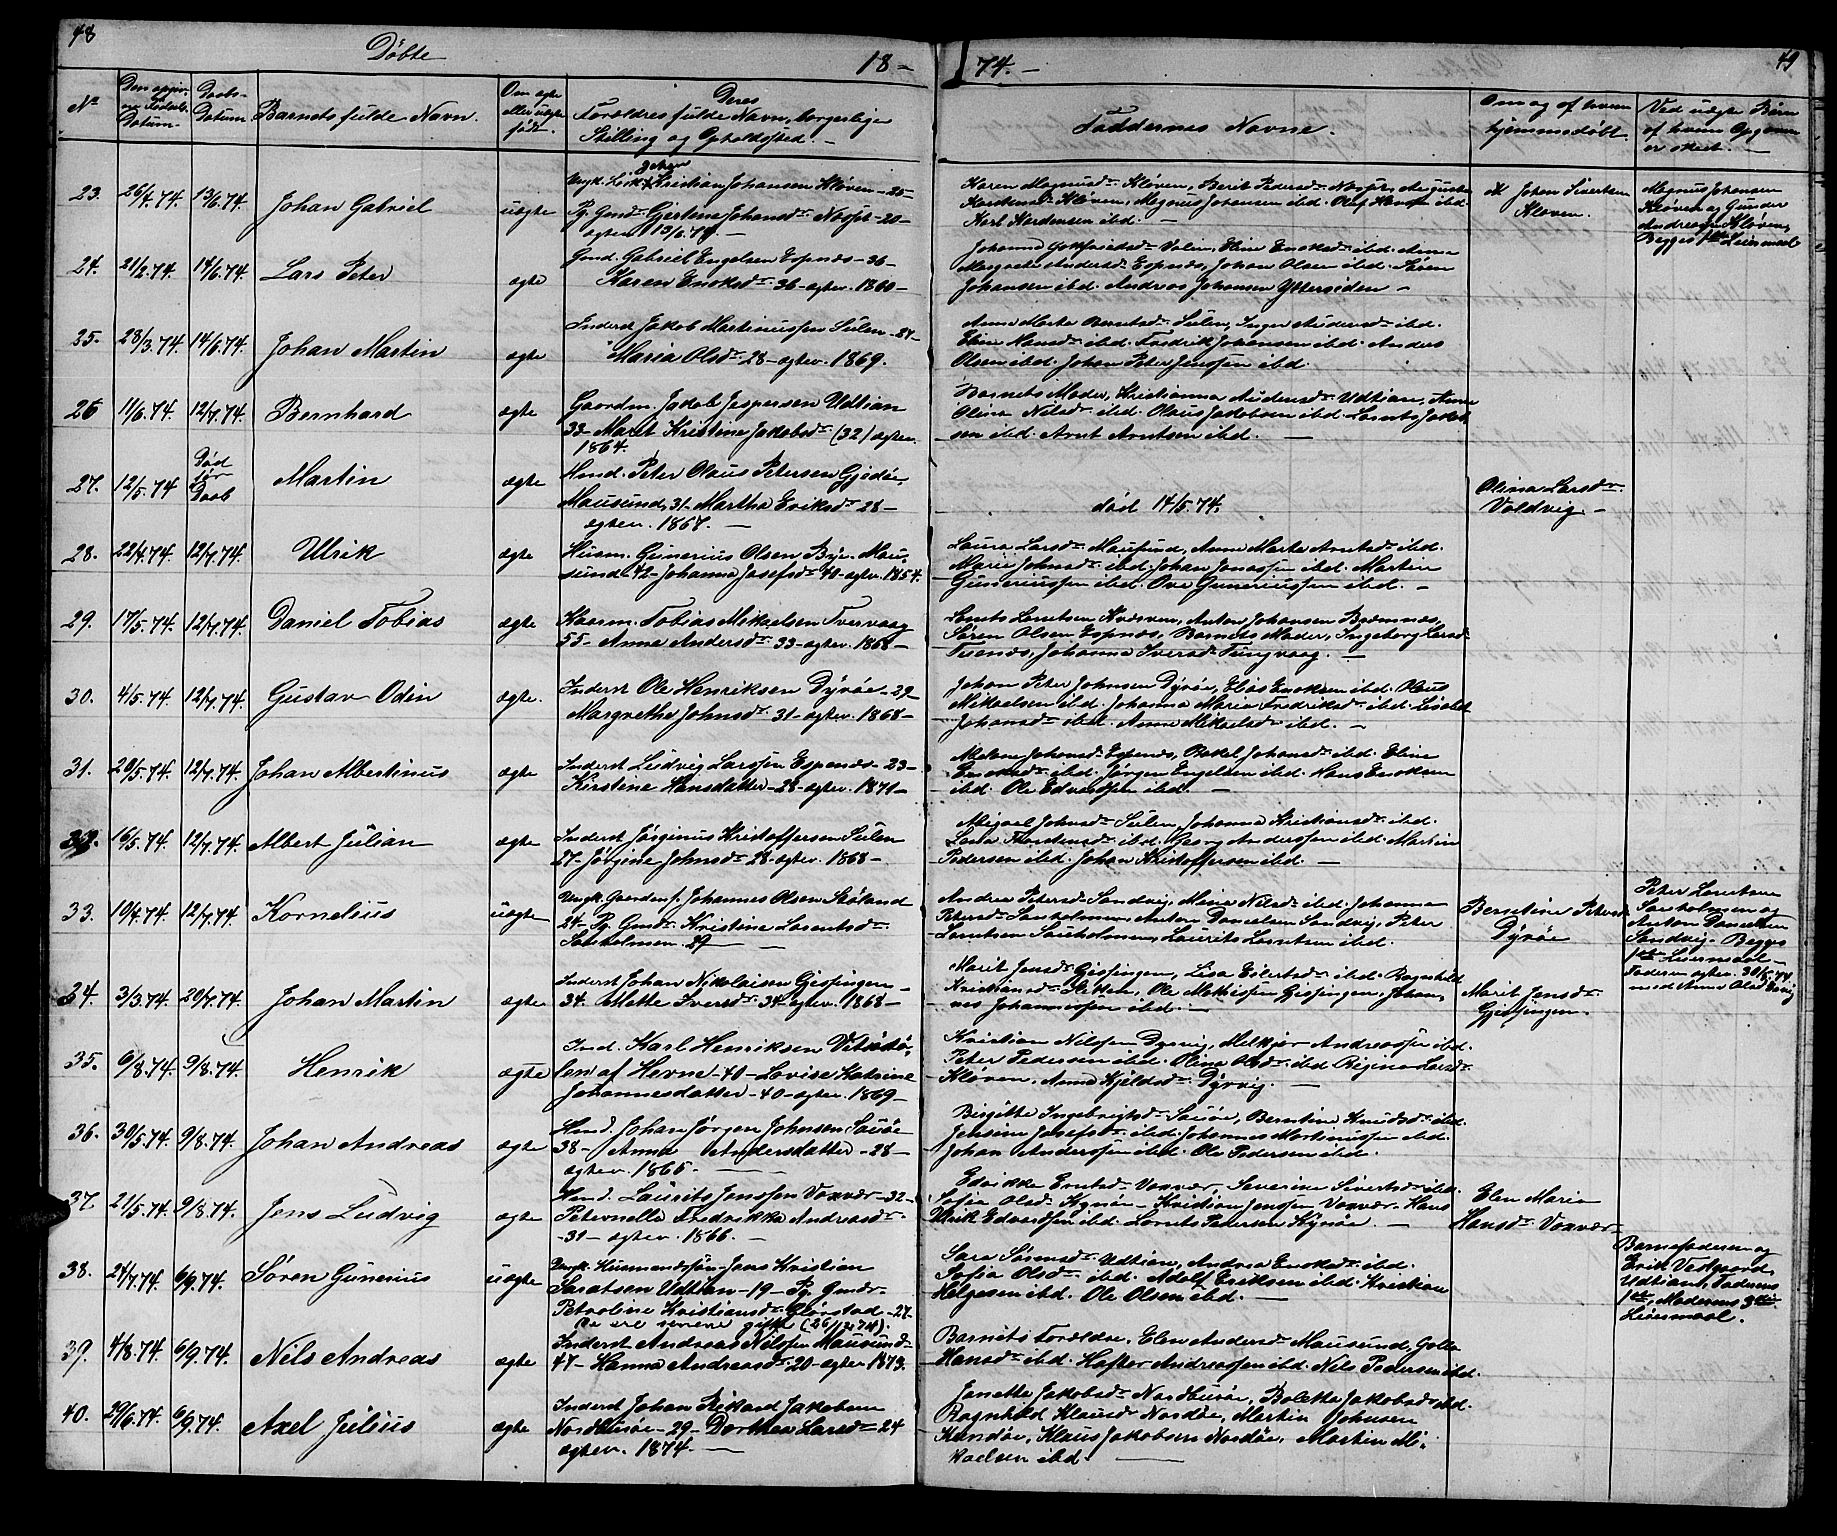 48
Döbte
18-
74.-
49
No
Den opgivne Födsels-Datum
Daabs-Datum
Barnets fulde Navn.
Om ægte eller uægte födt.
Deres Forældres fulde Navn, borgerlige Stilling og Opholdssted. -
Faddernes Navne.
Om og af hvem hjemmedöbt.
Ved uægte Börn af hvem Opgaven er skeet.
23. 26/4.74 13/6.74. Johan Gabriel uægte
Kristian Johansen Klöven - 25 -
Pg. Gmd. Gjertine Johansdr.
Karen Magnusdr. Klöven, Berit Pedersdr.
Klöven, Magnus Johansen ibd. Olaf Hansen ibd.
Karl ibd. -
Johan Sivertsen
Klöven.
Magnus Johansen
Klöven og Gunder
Andreasen Klöven,
Begges 1ste Leiermaal
24. 21/2.74. 14/6.74. Lars Peter ægte
Gmd. Gabriel Engelsen Espnæs - 36 -
Karen Enoksdr. 36 - ægtev. 1860 -
Johanna Valen, Eline Enoksdr. ibd. Anna
Margrete Andersdr. Espnæs, Johan Olsen ibd. Sören
Johansen ibd. Andreas Johansen Yttersiden -
25. 28/3.74. 14/6.74. Johan Martin ægte
Inderst Jakob Martinussen Sulen - 27 -
Maria Olsdr. 28 - ægtev. 1869.
Anna Marta Berntsdr. Sulen, Inger Andersdr. ibd.
Eline Hansdr. ibd. Fredrik Johansen ibd. Anders
Olsen ibd. Johan Peter Jenssen ibd.
26 11/6.74. 12/7.74. Bernhard ægte
Gaardm. Jakob Jespersen Udtian
33 - Maret Kristine Jakobsdr. (32) ægtev.
1864.
Barnets Moder, Kristianna Andersdr. Udtian, Anne
Olina Nilsdr. ibd. Olaus Jakobsen ibd. Lorents Jakob-
sen ibd. Arnt Arntsen ibd. -
27. 12/5.74 Död för Daab Martin ægte
Hmd. Peter Olaus Petersen Gjedöe,
Mausund, 31. Martha Eriksdr. 28 -
ægtev. 1867. -
död 14/5.74.
Olina Larsdr.
Valdvig. -
28. 22/4.74. 12/7.74. Ulrik ægte
Husm. Gunerius Olsen Byr. Mau-
sund - 42 - Johanna Josefsdr. 40 - ægtev. 1854.
Laura Larsdr. Mausund, Anne Marta Arntsdr. ibd.
Marie Johnsdr. ibd. Johan Jonassen ibd. Martin
Guneriussen ibd. Ove Guneriussen ibd. -
29. 17/5.74. 12/7.74. Daniel Tobias ægte
Tobias Mikaelsen Tvervaag
55 - Anna Andersdr. 33 - ægtev. 1868 -
Lorents Lorntsen Kvæsven, Anton Johansen Bremnæs,
Sören Olsen Espnæs, Barnets Moder, Ingeborg Larsdr.
Tuenæs, Johanna Iversdr. Tungvaag. -
30. 4/5.74. 12/7.74. Gustav Odin ægte.
Inderst Ole Henriksen Dyröe - 29 -
Margrethe Johnsdr. 31 - ægtev. 1868 -
Johan Peter Johnsen Dyröe, Elias Enoksen ibd. Olaus
Mikaelsen ibd. Johanna Maria Fredriksdr. ibd. Lisabet
Johansdr. ibd. Anna Mikaelsdr. ibd. -
31. 20/5.74. 12/7.74. Johan Albertinus ægte
Inderst Ludvig Larssen Espenæs - 23 -
Kirstine Hansdatter - 28 - ægtev. 1871 -
Malene Johansdr. Espnæs, Rakel Johansdr. ibd. Eline
Enoksdr. ibd. Jörgen Engelsen ibd. Hans Enoksen
ibd. Ole Edvardsen ibd. -
32. 16/5.74. 12/7.74. Albert Julian ægte
Inderst Jörginus Kristoffersen Sulen
27 - Jörgine Johnsdr. 28 - ægtev. 1868 -
Johnsdr. Sulen, Johanna Kristiansdr. ibd.
ibd. Georg Anderssen ibd. Martin
Pedersen ibd. Johan Kristoffersen ibd. -
33. 19/4.74. 12/7.74. Kornelius uægte
Ungk. Gaardmf. Johannes Olsen Stöland
24 - Pg. Gmdr. Kristine Lorentsdr.
Sauholmen. 29 -
Andrea Petersdr. Sandvig, Mina Nilsdr. ibd. Johanna
Petersdr. Sauholmen, Anton Danielsen Sandvig, Peter
Lorntsen Sauholmen, Laurits Lorntsen ibd.
Berntine Petersdr.
Dyröe
Peter Lorntsen
Sauholmen og
Anton Danielsen
Sandvig. Begges
1ste Leiermaal -
Faderen ægtev. 30/5.74
med Anna Olsdr.
34. 3/3.74. 20/7.74. Johan Martin ægte
Inderst Johan Nikolaisen Gjessingen -
34. Mette Iversdr. 34 - ægtev. 1868 -
Marit Jensdr. Gjessingen, Lisa Eilertsdr. ibd. Ragnhild
Kristiansdr. Ole Mathissen Gjessingen, Johan-
nes Johannessen ibd. -
Marit Jensdr.
Gjessingen.
35. 9/8.74. 9/8.74. Henrik ægte
Ind. Karl Henriksen
af Hevne - 40 - Lovise Katrine
Johannesdatter - 40 - ægtev. 1869 -
Kristian Nilssen Dyrvig, Melkjor Andreassen ibd.
Peter Pedersen ibd. Olina Olsdr. ibd. Regina Larsdr.
Klöven, Anna Kjeldsdr. Dyrvig. -
36. 30/5.74. 9/8.74. Johan Andreas ægte
Hmd. Johan Jörgen Johnsen Sauöe
38 - Anna Andersdatter - 28 -
ægtev. 1865. -
Birgitte Ingebrigtsdr. Sauöe, Berntine Knudsdr. ibd.
Jensine Josefsdr. ibd. Johannes Martinussen ibd.
Johan Anderssen ibd. Ole Pedersen ibd.
37. 21/5.74. 9/8.74. Jens Ludvig ægte
Hmd. Laurits Jenssen Vaxvær - 32 -
Peternella Fredrikka Andreasdr.
- 31 - ægtev. 1866. -
Edvikke Erntsdr. Vaxvær, Severine Sivertsdr. ibd.
Sofia Olsdr. Kynöe - Kristian Jenssen Vaxvær. Hans
Ulrik Edvardsen ibd. Lornts Pedersen Kynöe. -
Elen Maria
Hansdr. Vaxvær -
38. 24/7.74. 6/9.74. Sören Gunerius uægte
Ungk. Husmandssön Jens Kristian
Saratsen Udtian - 19 - Pg. Gmdr.
Petroline Kristiansdr. Glörstad - 27 -
(de ere senere gifte (26/12 74).
Sara Sörensdr. Udtian, Andrea Enoksdr. ibd.
Sofia Olsdr. ibd. Adolf Eriksen ibd. Kristian
Helgesen ibd. Ole Olsen ibd. -
Barnefaderen og
Erik Vedgaard,
Udtian. Faderens
1ste, Moderens 3die
Leiermaal.
39. 4/8.74. 6/9.74. Nils Andreas ægte
Inderst Andreas Nilssen Mausund -
47 - Hanna Andreasdr. 20 - ægtev. 1873.
Barnets Forældre, Elen Andersdr. Mausund, Golla
Hansdr. ibd. Hasper Andreassen ibd. Nils Pedersen ibd.
40. 29/6.74. 6/9.74. Axel Julius ægte
Inderst Johan Rikard Jakobsen
Nordburöe - 29 - Dorthea Larsdr. 24
ægtev. 1874. -
Janetta Jakobsdr. Nordburöe, Boletta Jakobsdr. ibd.
Ragnhild Klausdr. Nordöe, Martin Johnsen
Kundöe, Klaus Jakobsen Nordöe, Martin Mi-
kaelsen ibd. -